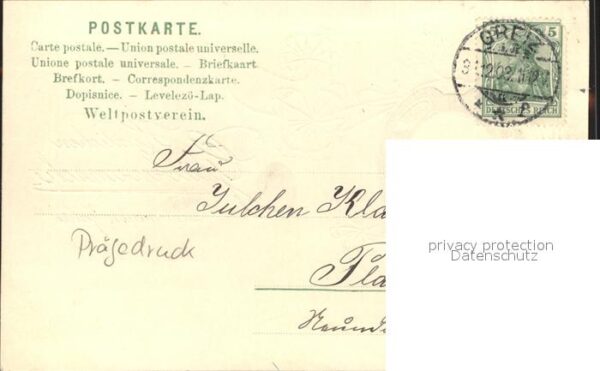 POSTKARTE.
Carte postale. — Union postale universelle.
Unione postale universale. – Briefkaart
Brefkort. – Correspondenzkarte.
Dopisnice. – Levelező-Lap.
Weltpostverein.
5
GREIZ
DEUTSCHES REICH
Frau
Julchen Kla
Präsedruck
Pla
privacy protection
Datenschutz